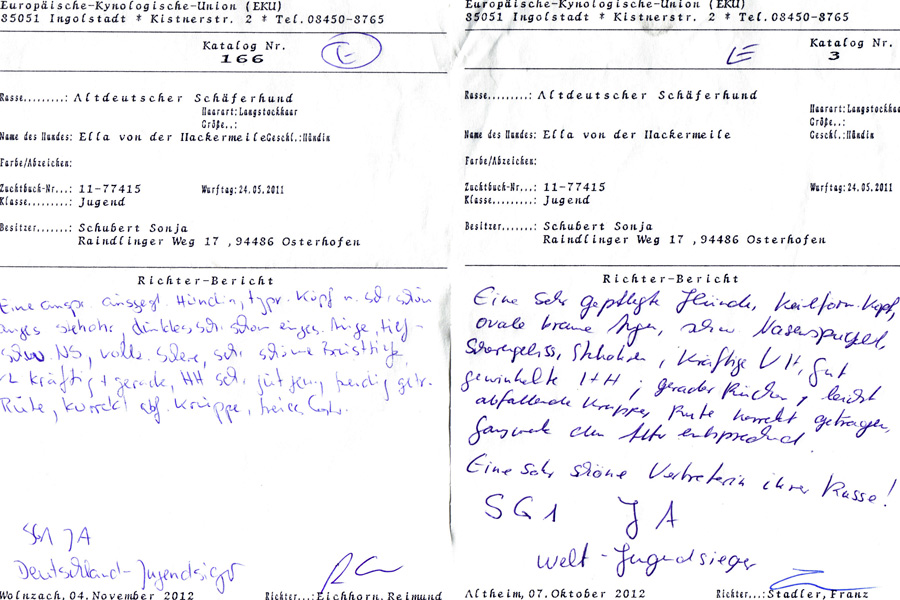 Europäische-Kynologische-Union (EKU)
85051 Ingolstadt * Kistnerstr. 2 * Tel.08450-8765
Katalog Nr.
166
E
Rasse.........: Altdeutscher Schäferhund
Haarart:Langstockhaar
Größe..:
Name des Hundes: Ella von der Hackermeile Geschl.:Hündin
Farbe/Abzeichen:
Zuchtbuch-Nr...: 11-77415 Wurftag:24.05.2011
Klasse.........: Jugend
Besitzer.......: Schubert Sonja
Raindlinger Weg 17 ,94486 Osterhofen
Richter-Bericht
Eine Hündin, typ. Kopf
dunkles Auge, tief-
NS, schöne
kräftig + gerade, HH
Rute, korrekt abf. Kruppe,
SG1 JA
Deutschland-Jugendsieger
Wolnzach, 04.November 2012 Richter...:Eichhorn, Reimund
Europäische-Kynologische-Union (EKU)
85051 Ingolstadt * Kistnerstr. 2 * Tel.08450-8765
Katalog Nr.
3
E
Rasse.........: Altdeutscher Schäferhund
Haarart:Langstockhaar
Größe..:
Name des Hundes: Ella von der Hackermeile Geschl.:Hündin
Farbe/Abzeichen:
Zuchtbuch-Nr...: 11-77415 Wurftag:24.05.2011
Klasse.........: Jugend
Besitzer.......: Schubert Sonja
Raindlinger Weg 17 ,94486 Osterhofen
Richter-Bericht
Eine sehr gepflegte Hündin, keilform. Kopf,
ovale braune Augen, Nasenspiegel,
Scherengebiss, Stehohren, kräftige VH, gut
gewinkelte HH, gerader Rücken, leicht
abfallende Kruppe, Rute korrekt getragen,
Gangwerk dem Alter entsprechend
Eine sehr schöne Vertreterin ihrer Rasse!
SG1 JA
Welt-Jugendsieger
Altheim, 07.Oktober 2012 Richter...:Stadler, Franz